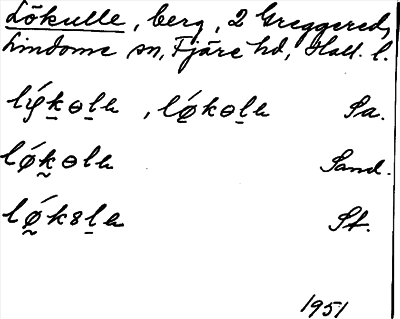 Lökulle, berg, 2 Greggered,
Lindome sn, Fjäre hd, Hall. l.
lǿkɵla, lǿkɵla Sa.
lǿkɵla Sand.
lǿk8la St.
1951